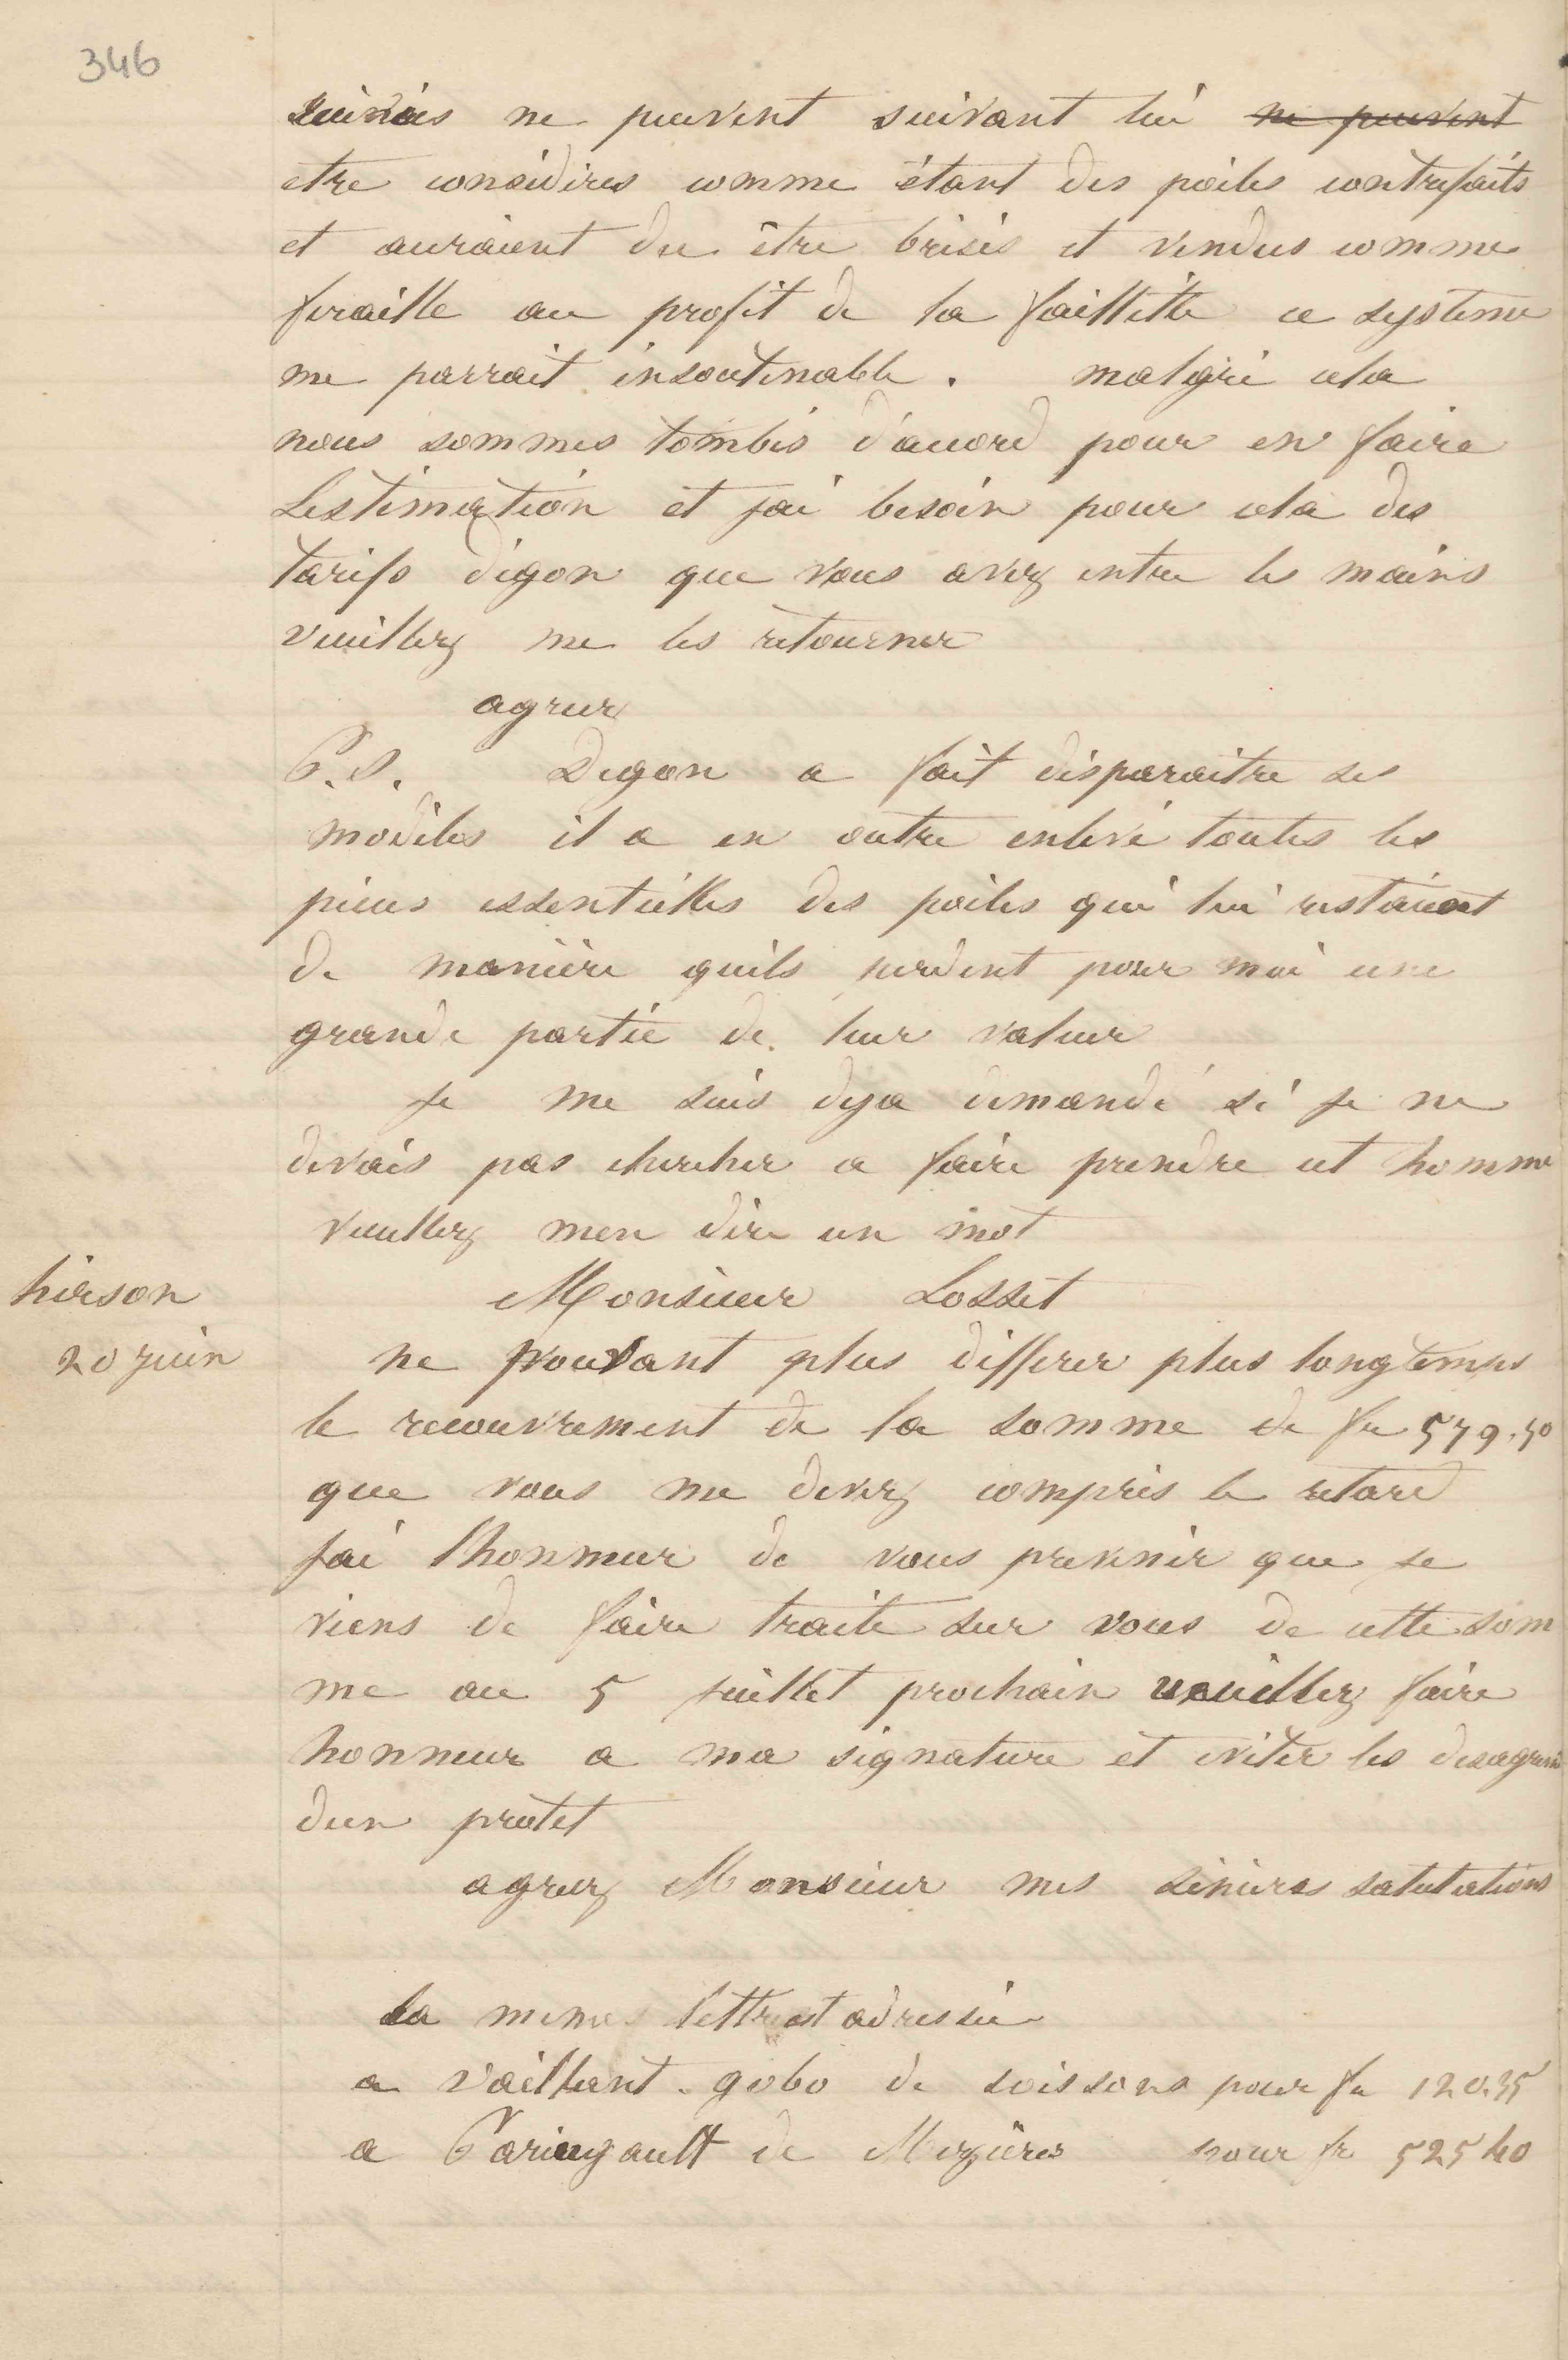 346
suivies ne peuvent suivant lui ne peuvent
etre considéres comme étant des poêles contrefaits
et auraient du être brisés et vendus comme
feraille au profit de la faillitte ce système
me parrait insoutenable. malgré cela
nous sommes tombés d'accord pour en faire
Lestimation et jai besoin pour cela des
tarifs degon que vous avez entre les mains
veuillez me les retourner
agreer
P.S. Degon a fait disparaitre ses
modèles il a en outre enlevé toutes les
pieces essentielles des poêles qui lui restaient
de manière quils perdent pour moi une
grande partie de leur valeur
Je me suis deja demandé si je ne
devais pas chercher a faire prendre cet homme
veuillez men dire un mot
hirson Monsieur Losset
20 juin ne pouvant plus differer plus longtemps
le recouvrement de la somme de fr 579.50
que vous me devez compris le retard
jai lhonneur de vous prevenir que je
viens de faire traite sur vous de cette som
me au 5 juillet prochain veuillez faire
honneur a ma signature et eviter les desagrem
dun protet
agreez Monsieur mes sincères salutations
La meme lettre est adressée
a Vaillant-gobo de soissons pour fr 120.35
a Paringault de Mezières pour fr 525 40